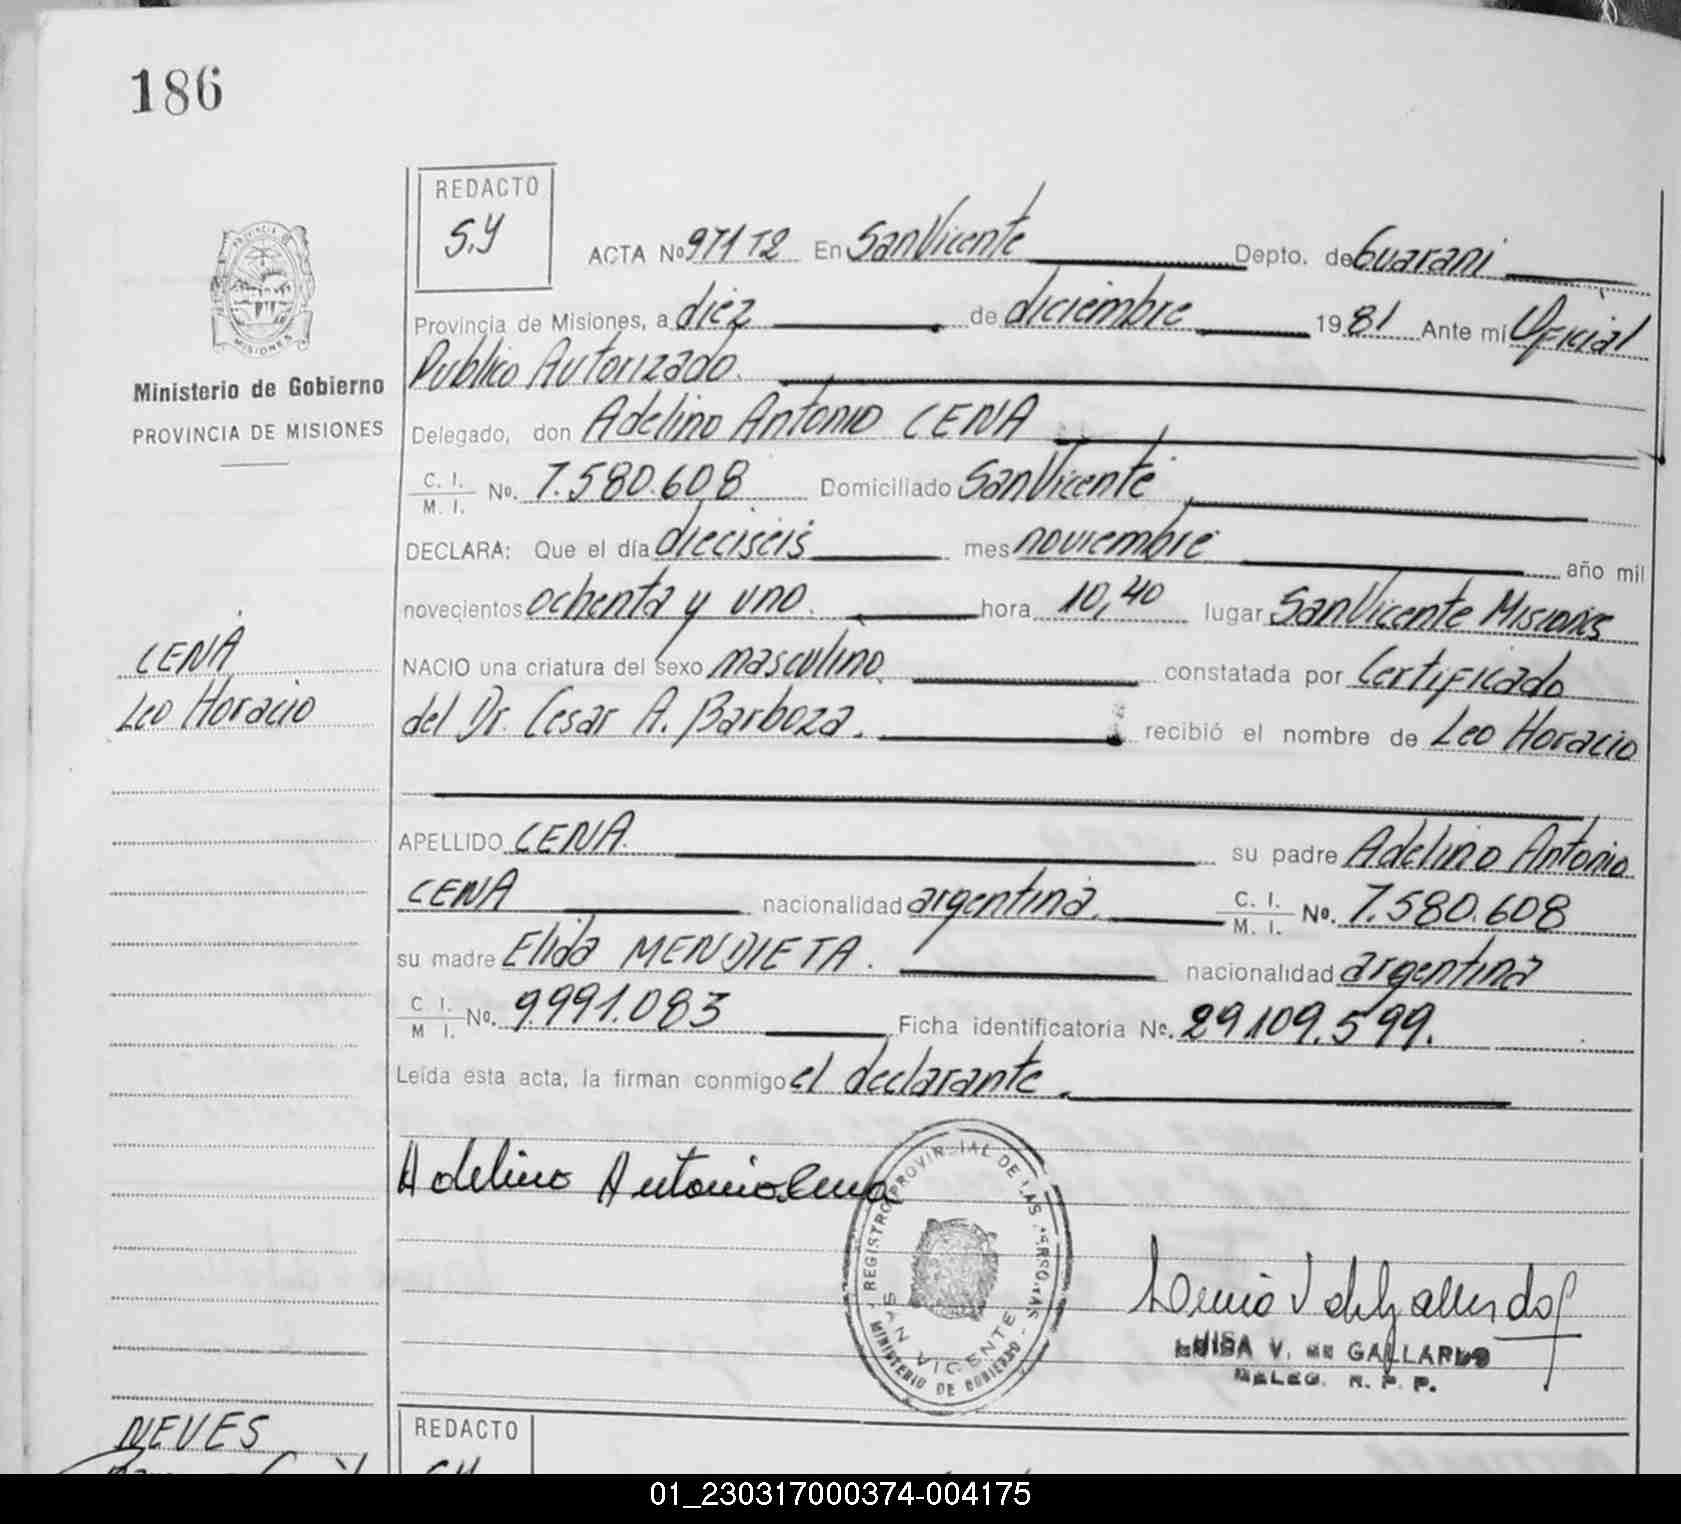 186
REDACTO
S.Y
ACTA No 971 T2 En San Vicente Depto. de Guarani
Provincia de Misiones, a diez de diciembre 1981 Ante mí Oficial
Publico Autorizado.
Delegado, don Adelino Antonio CENA
C. I.
M. I. No. 7.580.608 Domiciliado San Vicente
DECLARA: Que el día dieciseis mes noviembre año mil
novecientos ochenta y uno. hora 10,40 lugar San Vicente Misiones
NACIO una criatura del sexo masculino. constatada por Certificado
del Dr. Cesar A. Barboza. recibió el nombre de Leo Horacio
APELLIDO CENA. su padre Adelino Antonio
CENA nacionalidad argentina. C. I.
M. I. No. 7.580.608
su madre Elida MENDIETA. nacionalidad argentina
C I.
M I. No. 9.991.083 Ficha identificatoria No. 29.109.599.
Leída esta acta, la firman conmigo el declarante.
PROVINCIA DE
MISIONES
Ministerio de Gobierno
PROVINCIA DE MISIONES
CENA
Leo Horacio
Adelino Antonio Cena
REGISTRO PROVINCIAL DE LAS PERSONAS
SAN VICENTE
MINISTERIO DE GOBIERNO
LUISA V. DE GALLARDO
DELEG. R. P. P.
NEVES
REDACTO
01_230317000374-004175